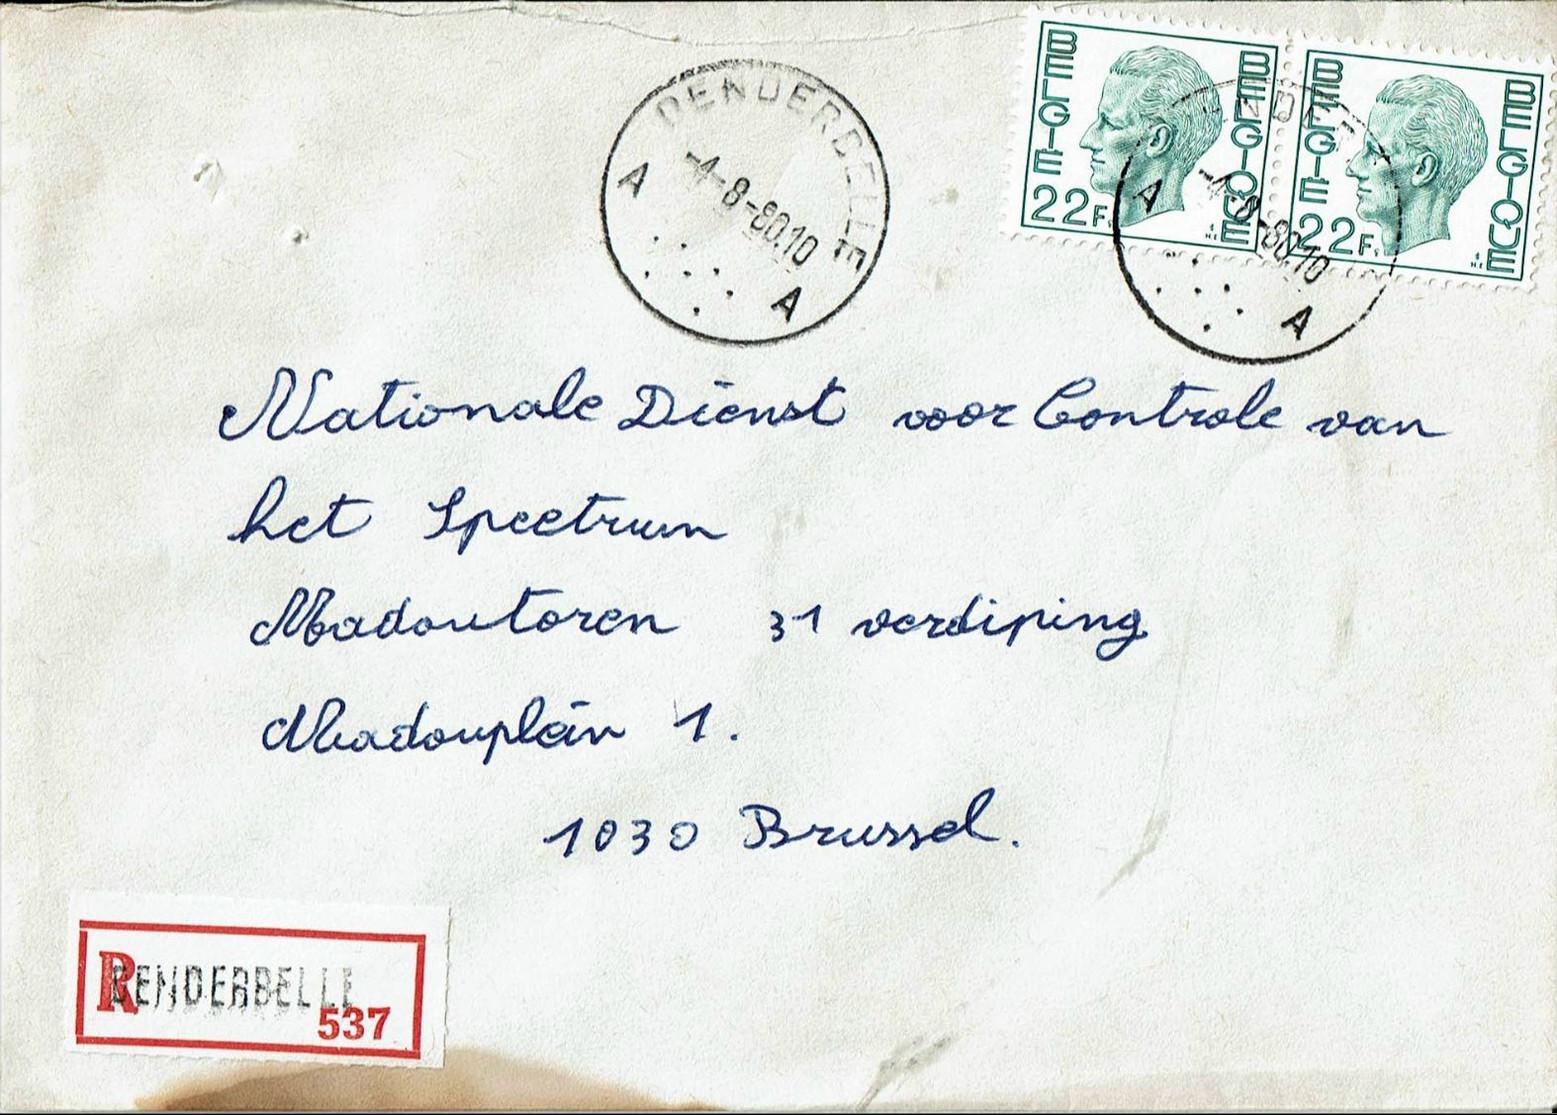 BELGIE BELGIQUE 22F
BELGIE BELGIQUE 22F
DENDERBELLE
A -4-8-80.10 A
A -4-8-80.10 A
Nationale Dienst voor Controle van
het Spectrum
Madoutoren 31 verdiping
Madouplein 1.
1030 Brussel.
R DENDERBELLE
537